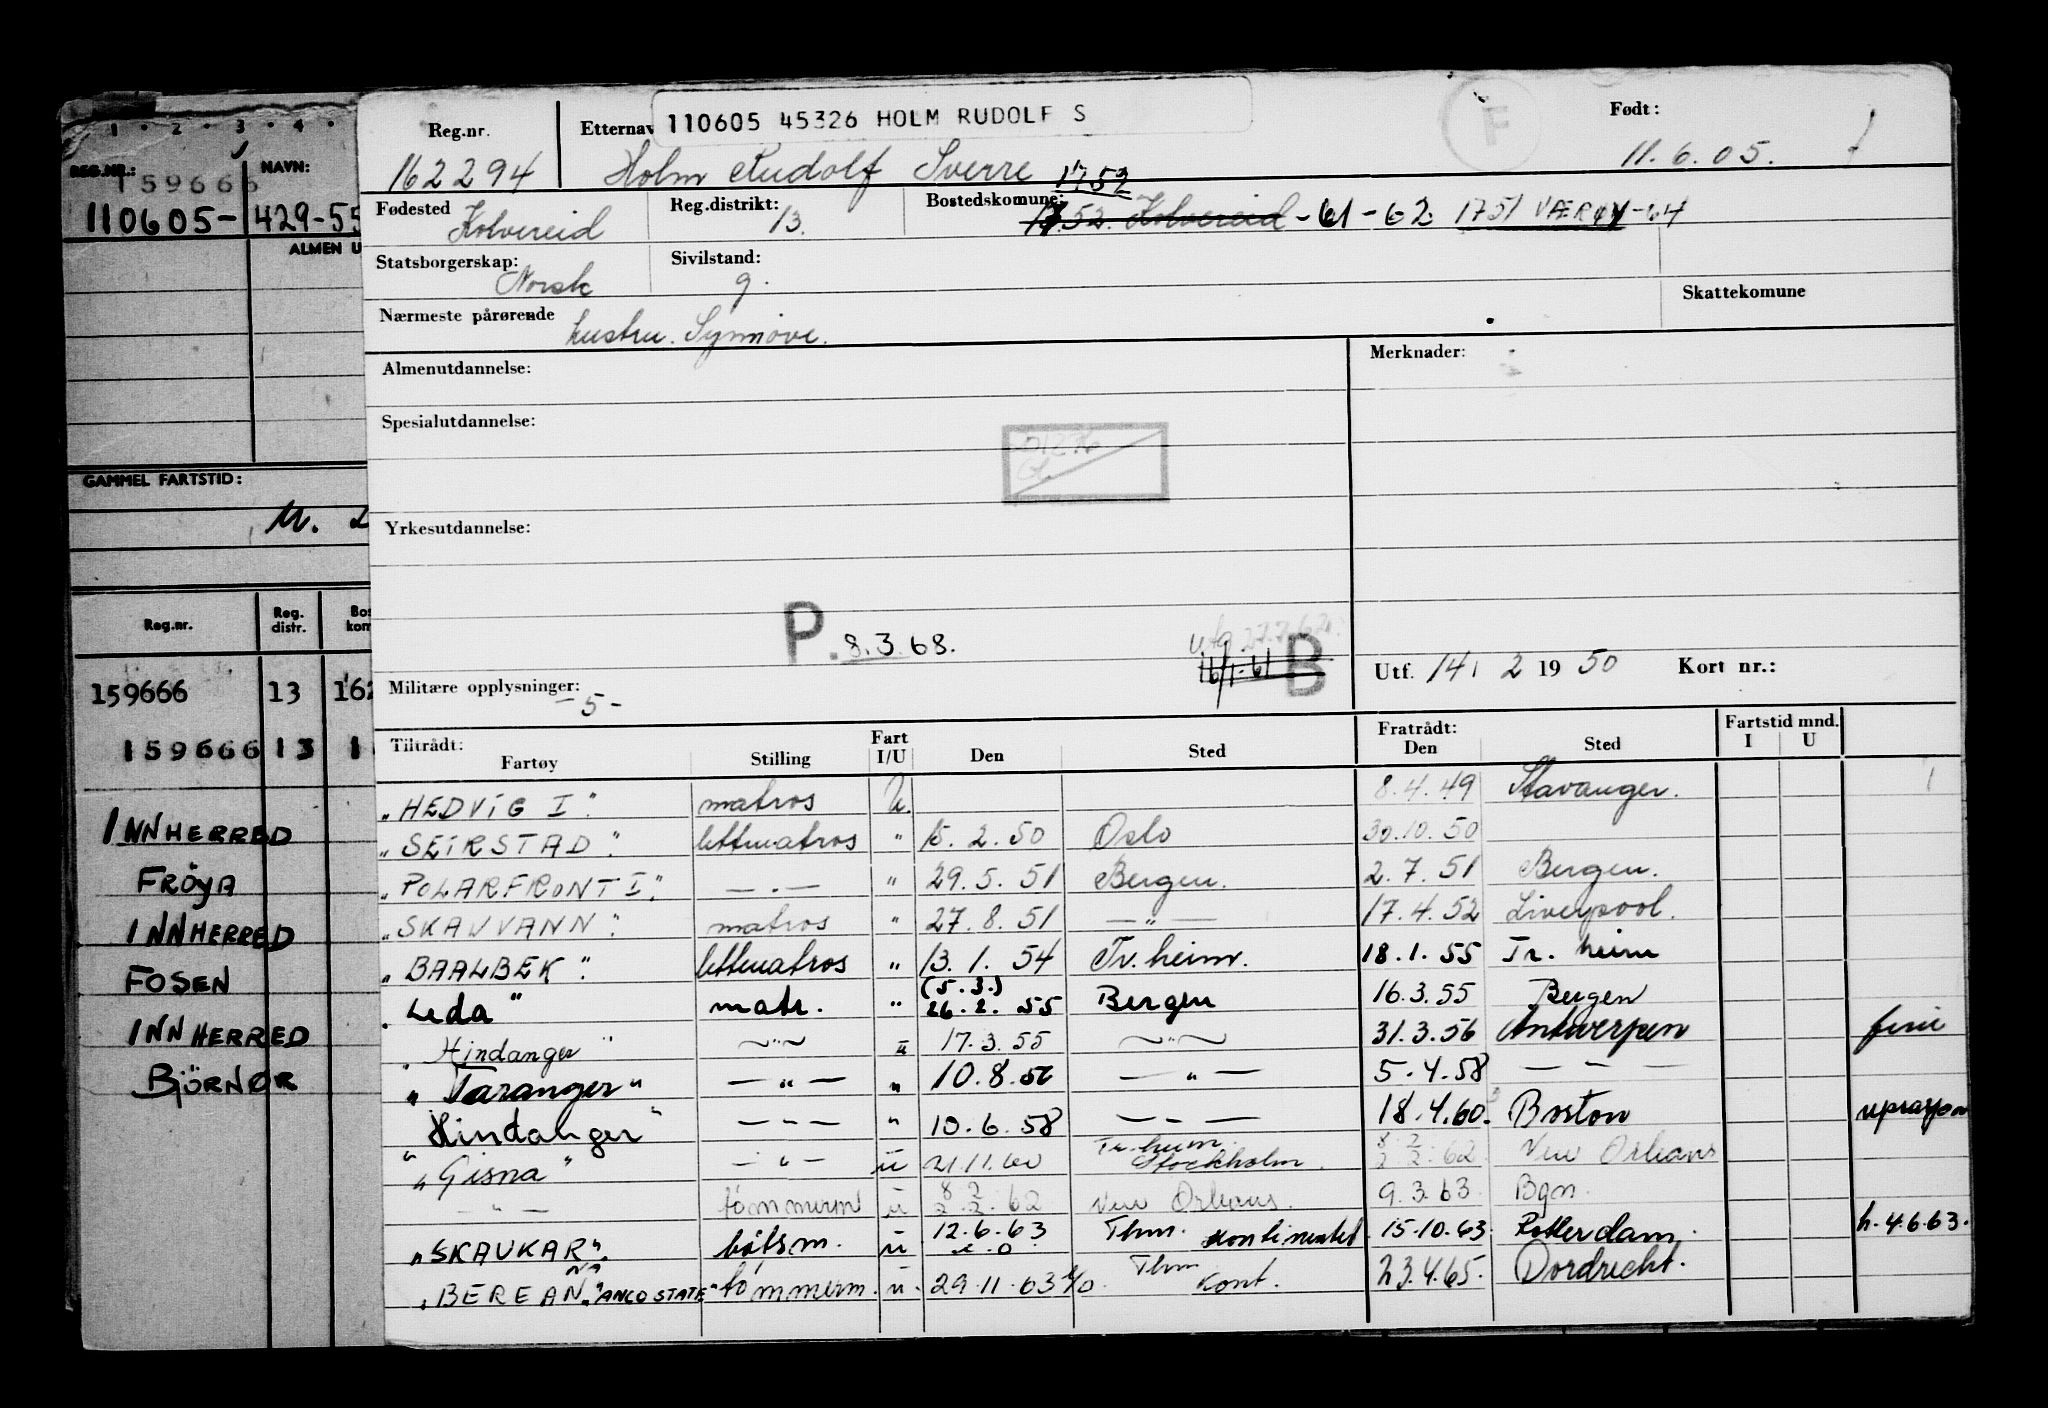 1 · 2 · 3 · 4 ·
REG.NR.: NAVN:
159666
110605- 429-55
ALMEN U
GAMMEL FARTSTID:
M.
Reg.nr. Reg. distr. Bos kom
159666 13 162
159666 13 1
INNHERRED
FRÖYA
INNHERRED
FOSEN
INNHERRED
BJÖRNÖR
Reg.nr. Etternav 110605 45326 HOLM RUDOLF S F Født:
162294 Holm Rudolf Sverre 11.6.05.
1752
Fødested Kolvereid Reg.distrikt: 13. Bostedskomune: 1752. Kolvereid -61-62. 1751 VÆRØY-64
Statsborgerskap: Norsk Sivilstand: g. Skattekomune
Nærmeste pårørende hustru. Synnøve.
Almenutdannelse: Merknader:
Spesialutdannelse:
Yrkesutdannelse:
P. 8.3.68. utg 27.7.62.
16/1-61 B
Militære opplysninger: -5- Utf. 14. 2 1950 Kort nr.:
Tiltrådt: Fart Fratrådt: Fartstid mnd.
Fartøy Stilling I/U Den Sted Den Sted I U
"HEDVIG I". matros U. 8.4.49 Stavanger.
"SEIRSTAD". lettmatros " 15.2.50 Oslo 30.10.50
"POLARFRONT I". —.— " 29.5.51 Bergen. 2.7.51 Bergen.
"SKAUVANN". matros " 27.8.51 —"— 17.4.52 Liverpool.
"BAALBEK". lettmatros " 13.1.54 Tr.heim. 18.1.55 Tr.heim
"Leda" matr. " (5.3.) 26.2.55 Bergen 16.3.55 Bergen
"Hindanger" —"— u 17.3.55 —"— 31.3.56 Antwerpen ferie
"Taranger" —"— " 10.8.56 —"— 5.4.58 — — —
"Hindanger" — — — " 10.6.58 — — — 18.4.60. Boston
"Gisna" —"— u 21.11.60 Tr.heim. Stockholm. 8.2 2.2.62 New Orleans
—"— tømmerm u 8.2 2.2.62 New Orleans. 9.3.63 Bgn.
"SKAUKAR". båtsm. u 12.6.63 Thm. kontinentet 15.10.63. Rotterdam. h.4.6.63.
"BEREAN" nå "ANCO STATE" tømmerm. u. 29.11.63 Thm Kont. 23.4.65. Dordrecht.